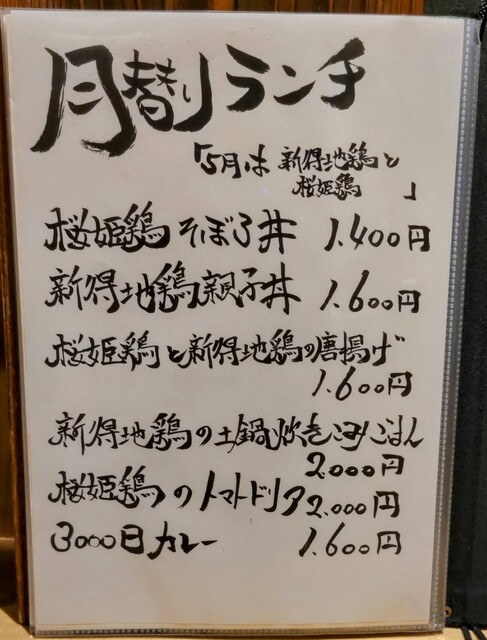 月替りランチ
「5月は 新得地鶏と
桜姫鶏 」
桜姫鶏そぼろ丼 1.400円
新得地鶏親子丼 1.600円
桜姫鶏と新得地鶏の唐揚げ
1.600円
新得地鶏の土鍋炊きこみごはん
2.000円
桜姫鶏のトマトドリア2.000円
3000日カレー 1.600円